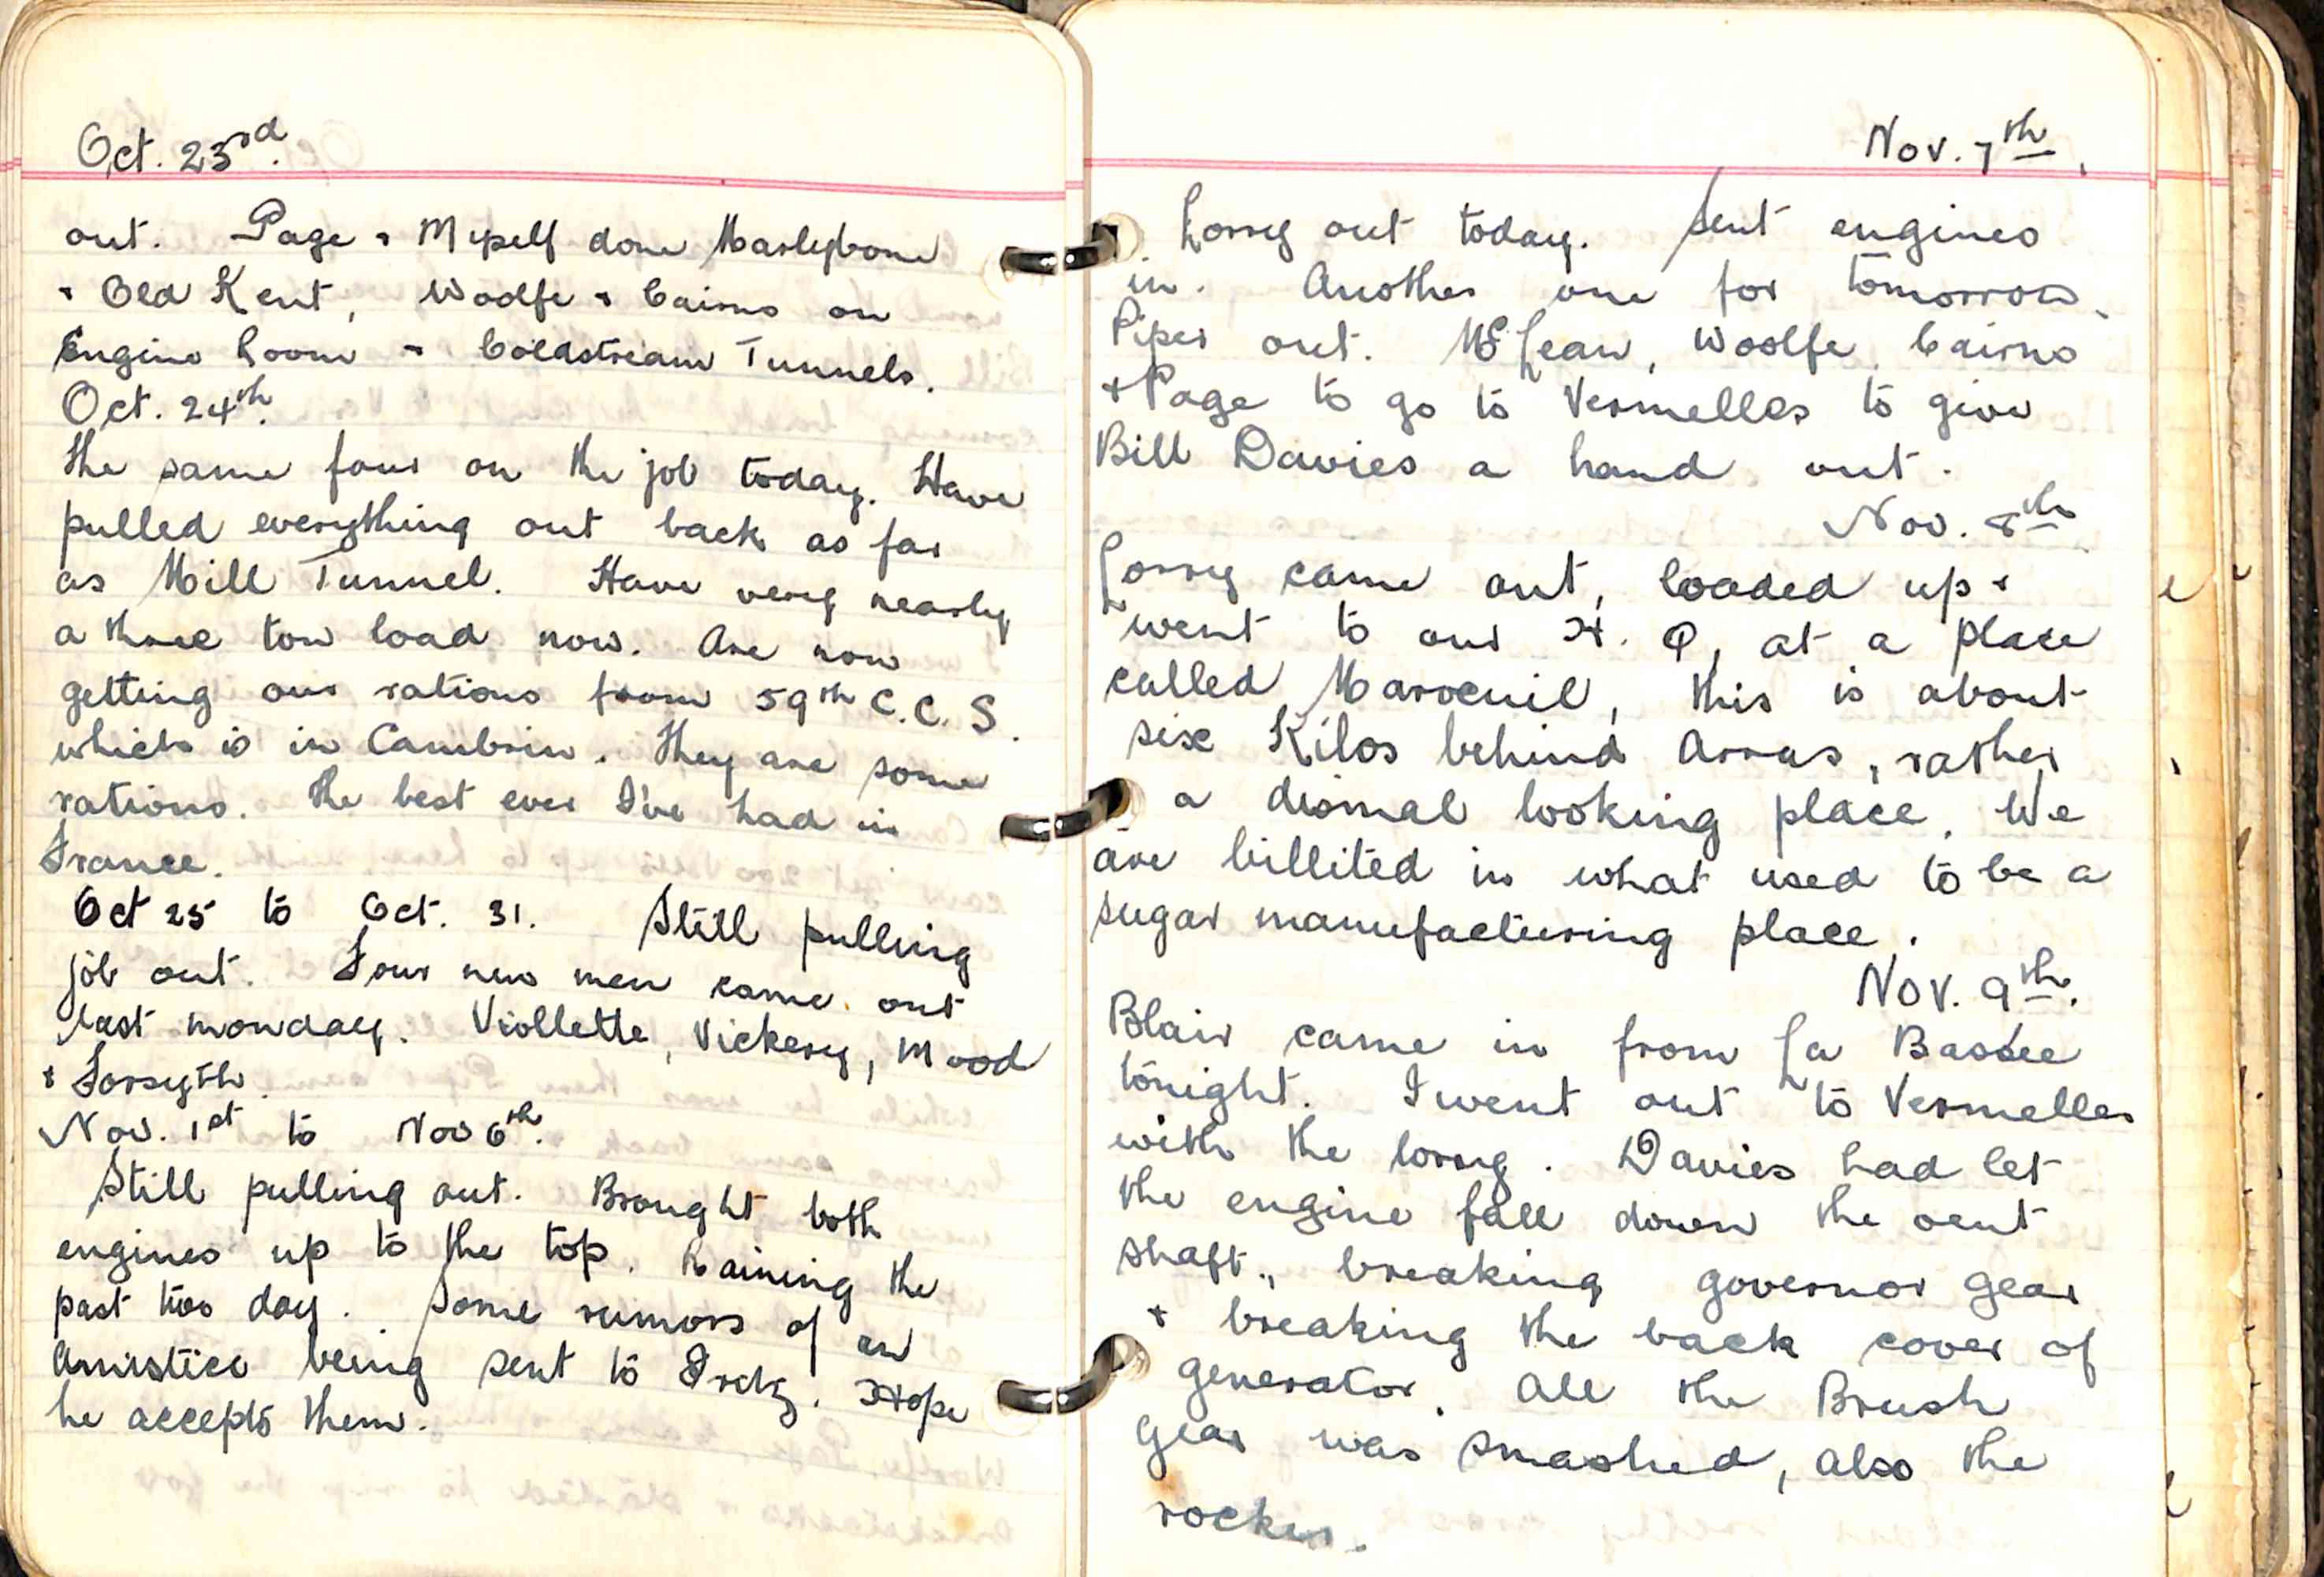 Oct. 23rd.
out. Page & Myself done Marleybone
& Old Kent, Woolfe & Cairns on
Engine Room & Coldstream Tunnels.
Oct. 24th.
The same four on the job today. Have
pulled everything out back as far
as Mill Tunnel. Have very nearly
a three ton load now. Are now
getting our rations from 59th C.C.S.
which is in Cambrin. They are some
rations. The best ever I've had in
France.
Oct 25 to Oct. 31. Still pulling
job out. Four new men came out
last monday. Viollette, Vickery, Mood
& Forsyth.
Nov. 1st to Nov 6th.
Still pulling out. Brought both
engines up to the top. Raining the
past two day. Some rumors of an
Amistice being sent to Fritz. Hope
he accepts them.
Nov. 7th.
Lorry out today. Sent engines
in. Another one for tomorrow.
Piper out. McLean, Woolfe, Cairns
& Page to go to Vermelles to give
Bill Davies a hand out.
Nov. 8th
Lorry came out, loaded up &
went to our H. Q, at a place
called Maroeuil, this is about
six Kilos behind Arras, rather
a dismal looking place. We
are billited in what used to be a
sugar manufacturing place.
Nov. 9th.
Blair came in from La Bassee
tonight. I went out to Vermelles
with the lorry. Davies had let
the engine fall down the vent
shaft, breaking governor gear
& breaking the back cover of
generator. All the Brush
gear was smashed, also the
rocker.